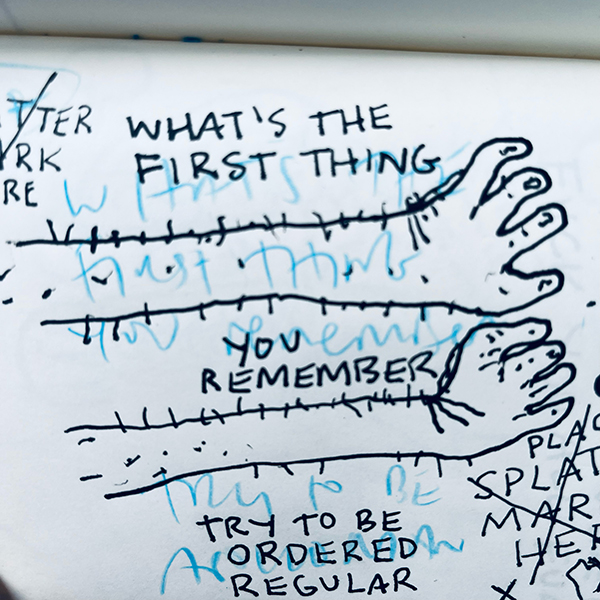 WHAT'S THE
FIRST THING
WHAT'S THE
FIRST THING
YOU remember
YOU
REMEMBER
TRY TO BE
TRY TO BE
ORDERED
REGULAR
RK
RE
TTER
SPLAT
MAR
HE